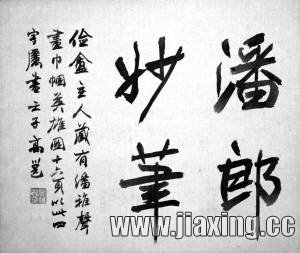 潘郎
妙筆
儉盦主人藏有潘雅聲
畫巾幗英雄圖十六頁以此四
字屬書壬子高邕
www.jiaxing.cc